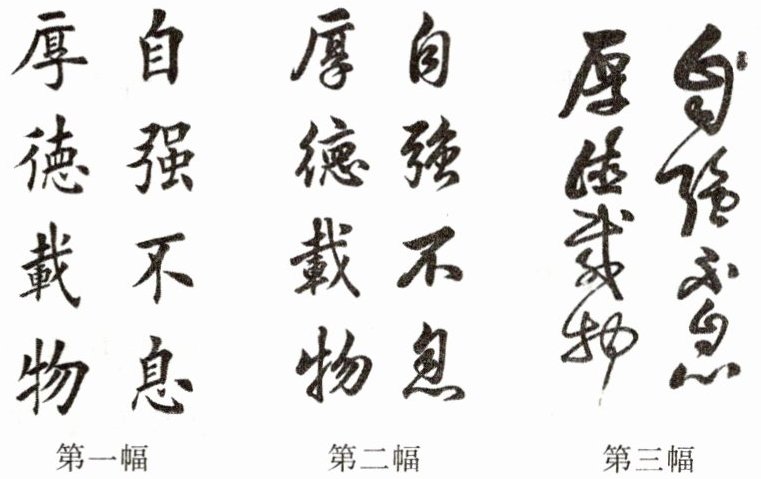 自强不息
厚德載物
第一幅
自強不息
厚德載物
第二幅
自强不息
厚德載物
第三幅